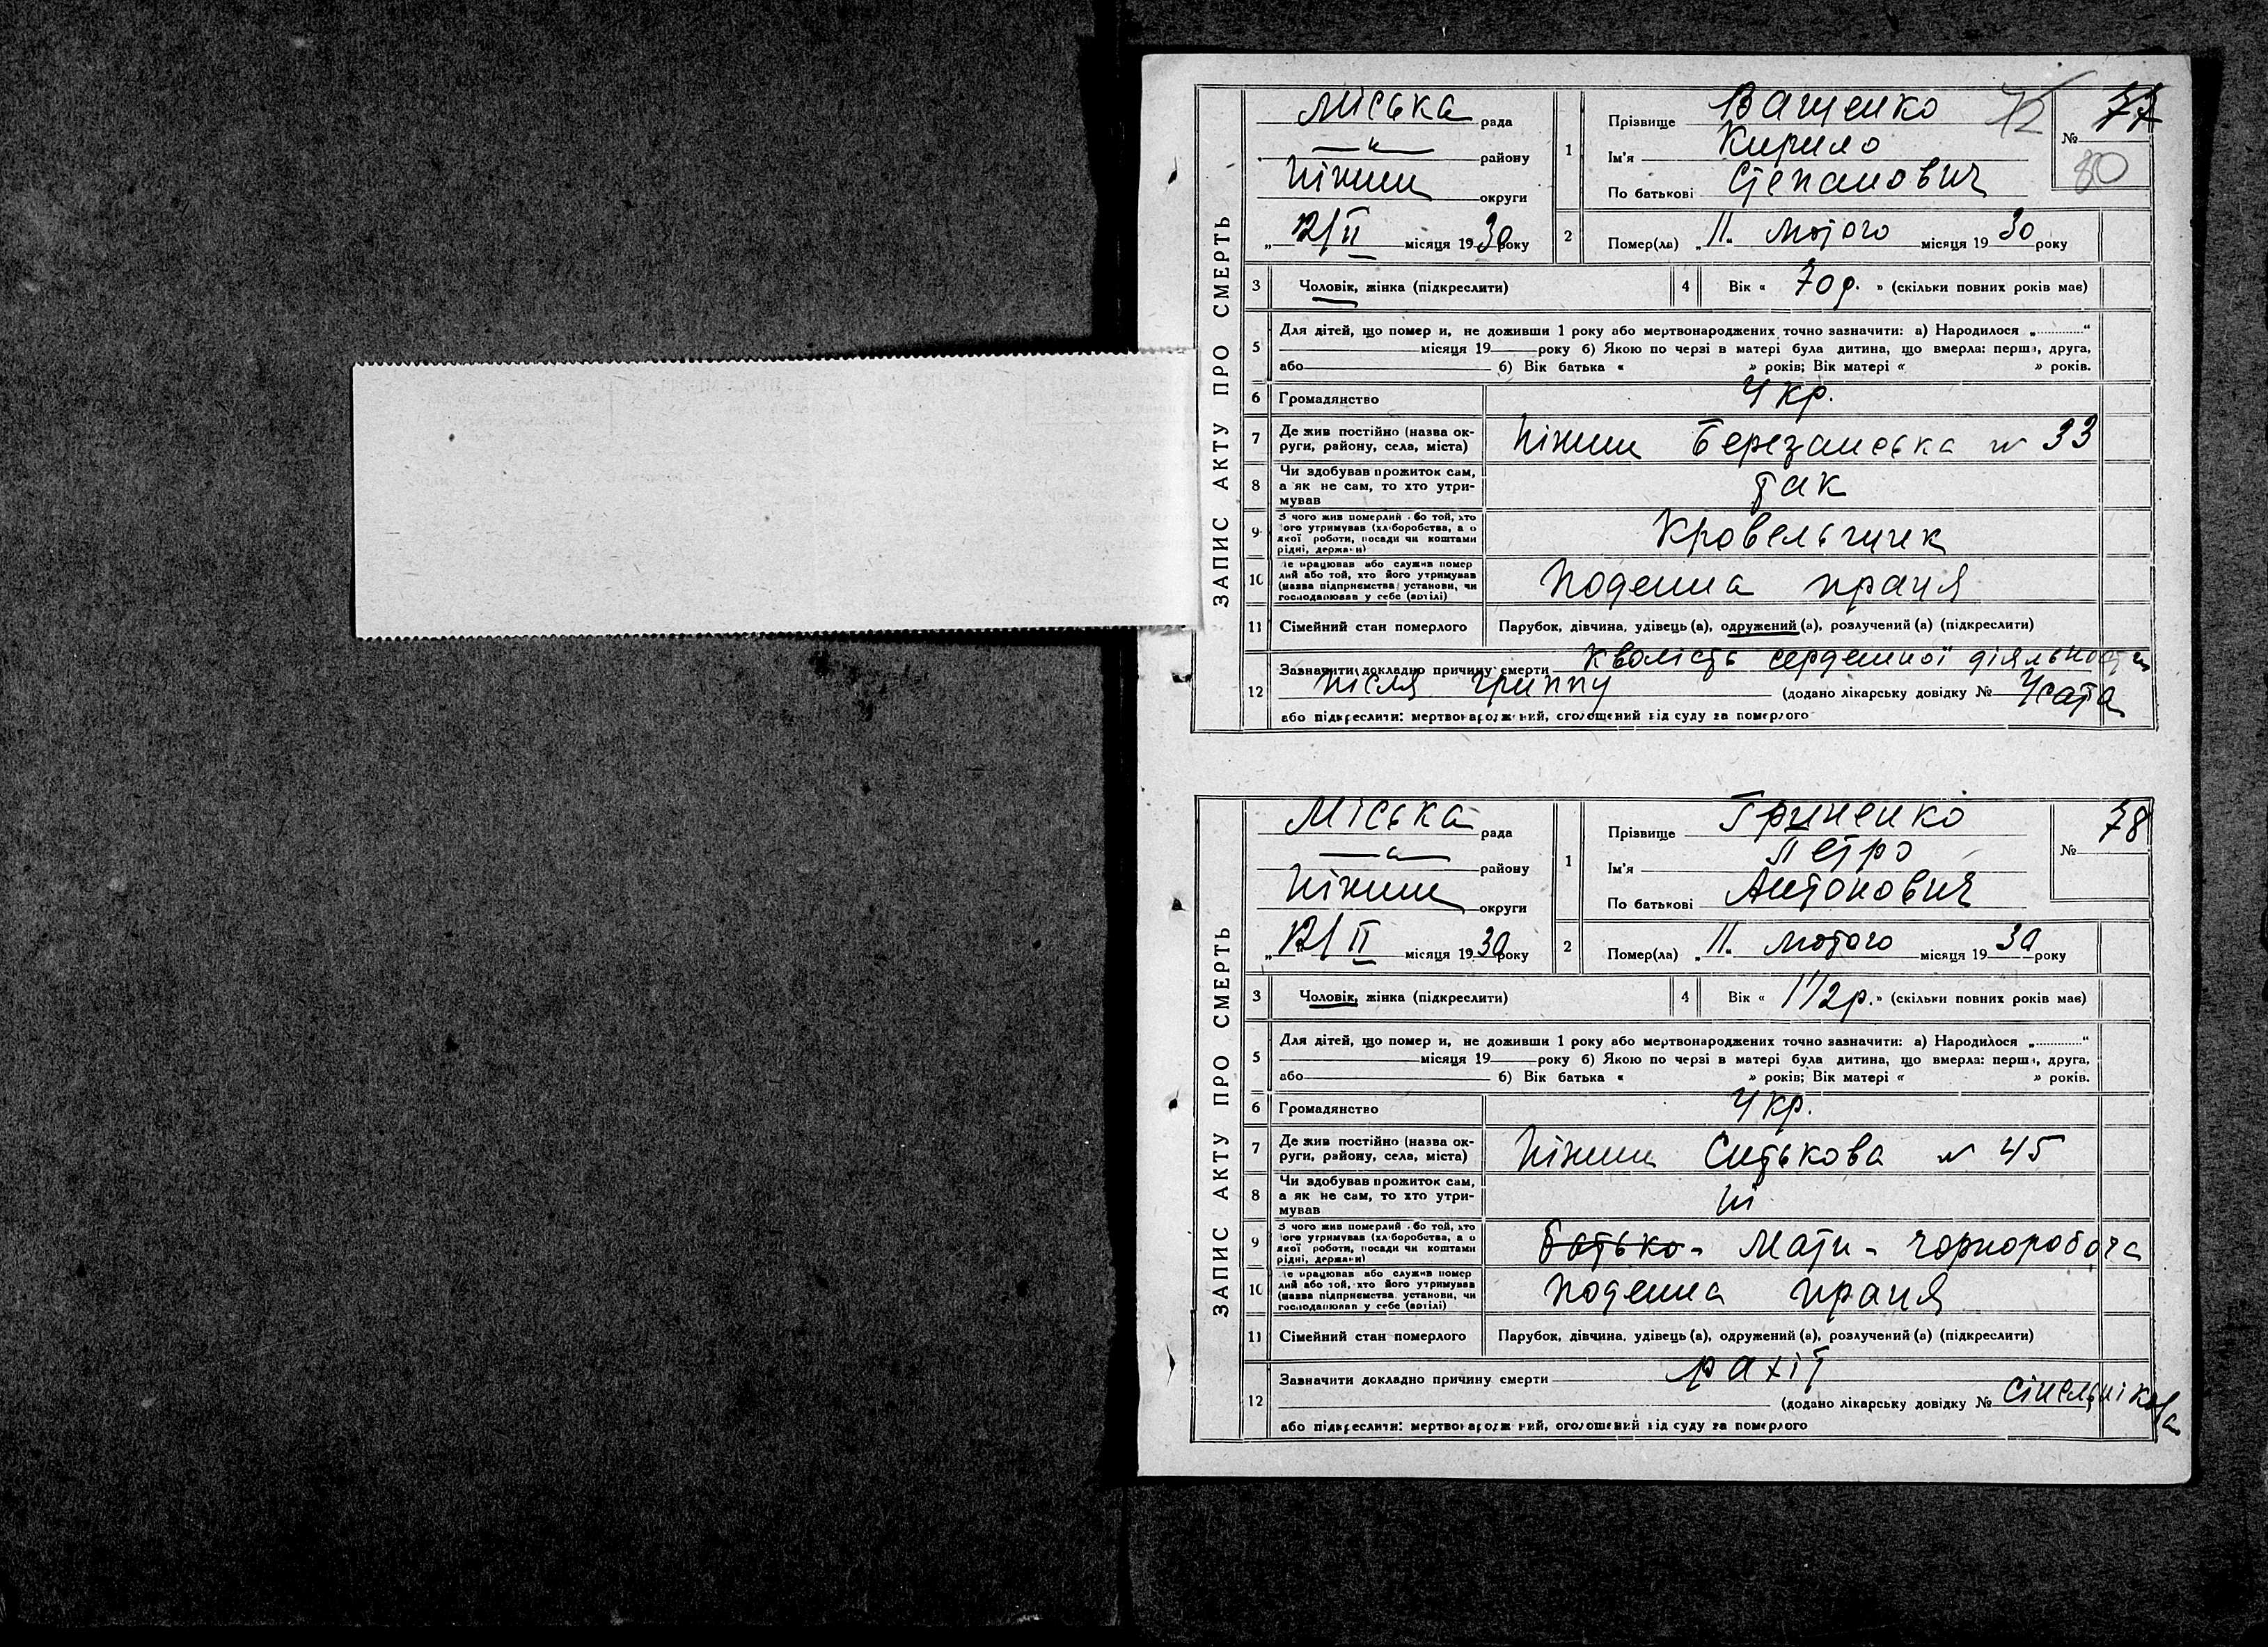 ЗАПИС АКТУ ПРО СМЕРТЬ
Міська рада
—"— району
Ніжин округи
„12/II місяця 1930 року
1
Прізвище Ващенко
Ім'я Кирило
По батькові Степанович
№ 77
80
2 Помер(ла) „11" лютого місяця 1930 року
3 Чоловік, жінка (підкреслити)
4 Вік « 70 р. » (скільки повних років має)
5 Для дітей, що помер и, не доживши 1 року або мертвонароджених точно зазначити: а) Народилося „............“
місяця 19 року б) Якою по черзі в матері була дитина, що вмерла: перша, друга,
або б) Вік батька « » років; Вік матері « » років.
6 Громадянство Укр.
7 Де жив постійно (назва ок-
руги, району, села, міста) Ніжин Березанська № 33
8 Чи здобував прожиток сам,
а як не сам, то хто утри-
мував так
9 З чого жив померлий або той, хто
його утримував (хліборобства, а о
якої роботи, посади чи коштами
рідні, держави) Кровельщик
10 Де працював або служив помер
лий або той, хто його утримував
(назва підприємства, установи, чи
господарював у себе (артілі) Поденна праця
11 Сімейний стан померлого Парубок, дівчина, удівець (а), одружений (а), розлучений (а) (підкреслити)
12 Зазначити докладно причину смерти Кволість сердешної діяльности
після гриппу (додано лікарську довідку № Усата
або підкреслити: мертвонароджений, оголошений від суду за померлого
ЗАПИС АКТУ ПРО СМЕРТЬ
Міська рада
—"— району
Ніжин округи
„12/II місяця 1930 року
1
Прізвище Гриненко
Ім'я Петро
По батькові Антонович
№ 78
2 Помер(ла) „11" лютого місяця 1930 року
3 Чоловік, жінка (підкреслити)
4 Вік « 1 1/2 р. » (скільки повних років має)
5 Для дітей, що помер и, не доживши 1 року або мертвонароджених точно зазначити: а) Народилося „............“
місяця 19 року б) Якою по черзі в матері була дитина, що вмерла: перша, друга,
або б) Вік батька « » років; Вік матері « » років.
6 Громадянство Укр.
7 Де жив постійно (назва ок-
руги, району, села, міста) Ніжин Ситькова № 45
8 Чи здобував прожиток сам,
а як не сам, то хто утри-
мував ні
9 З чого жив померлий або той, хто
його утримував (хліборобства, а о
якої роботи, посади чи коштами
рідні, держави) Батько - Мати - чорноробоча
10 Де працював або служив помер
лий або той, хто його утримував
(назва підприємства, установи, чи
господарював у себе (артілі) Поденна праця
11 Сімейний стан померлого Парубок, дівчина, удівець (а), одружений (а), розлучений (а) (підкреслити)
12 Зазначити докладно причину смерти рахіт
(додано лікарську довідку № Сінельнікова)
або підкреслити: мертвонароджений, оголошений від суду за померлого